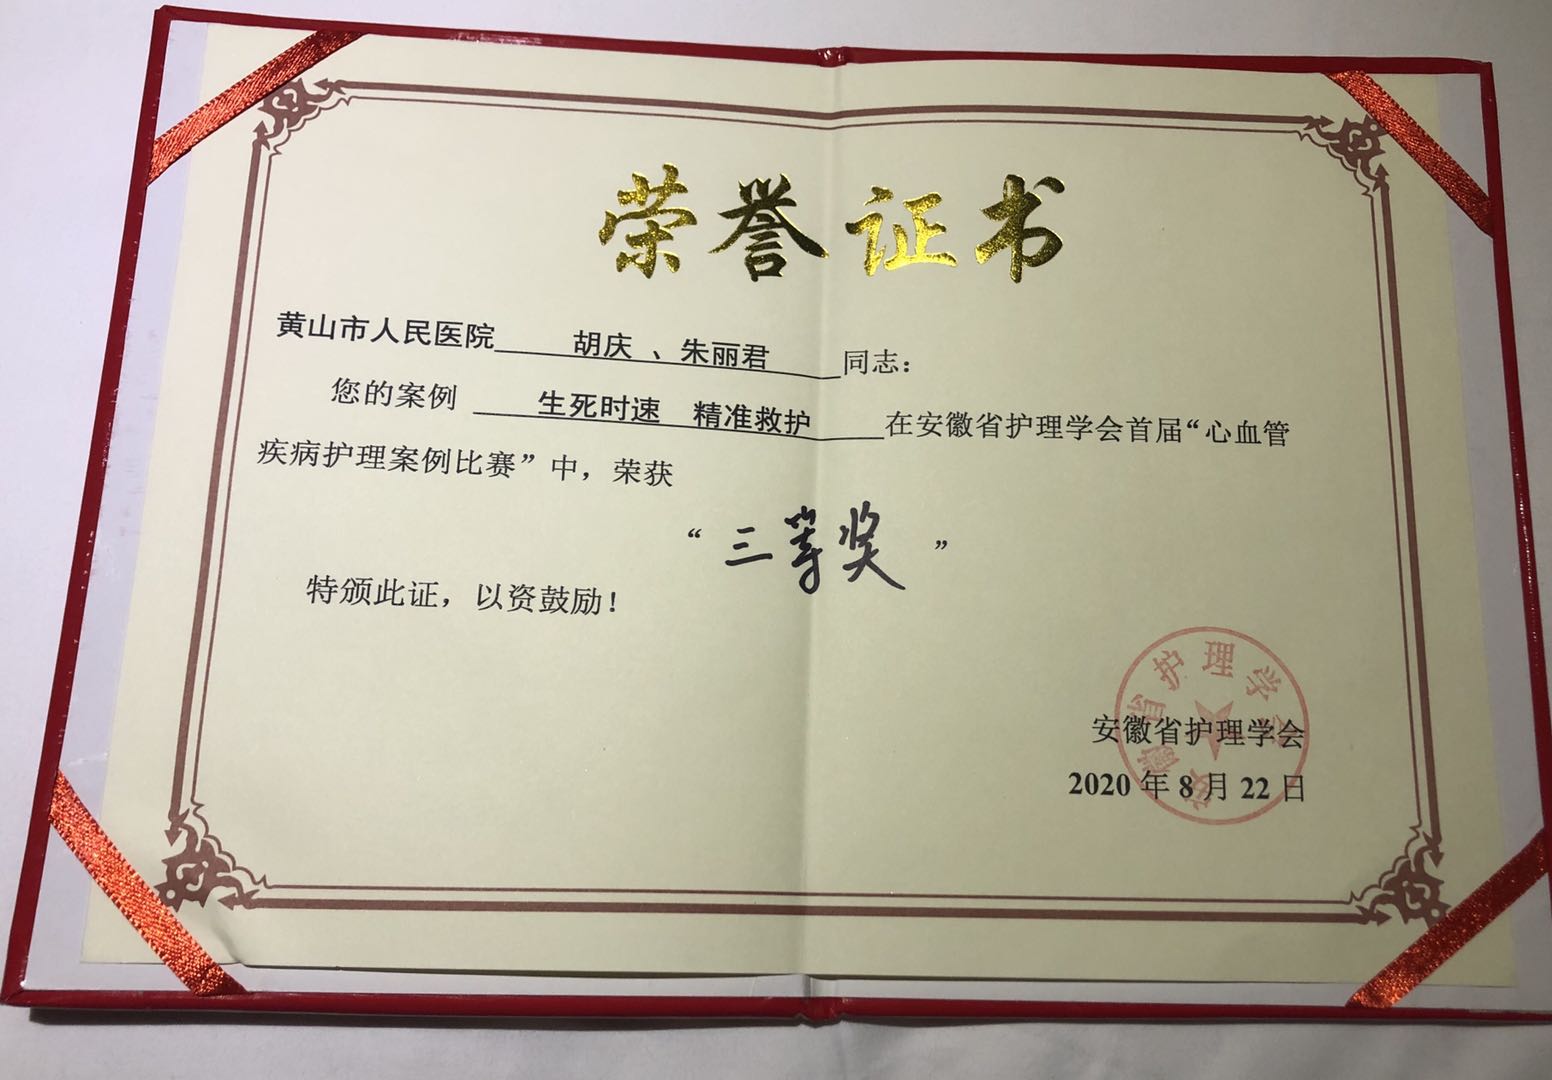 荣誉证书
黄山市人民医院 胡庆 、朱丽君 同志：
您的案例 生死时速 精准救护 在安徽省护理学会首届“心血管
疾病护理案例比赛”中，荣获
“三等奖”
特颁此证，以资鼓励！
安徽省护理学会
安徽省护理学会
2020 年 8 月 22 日